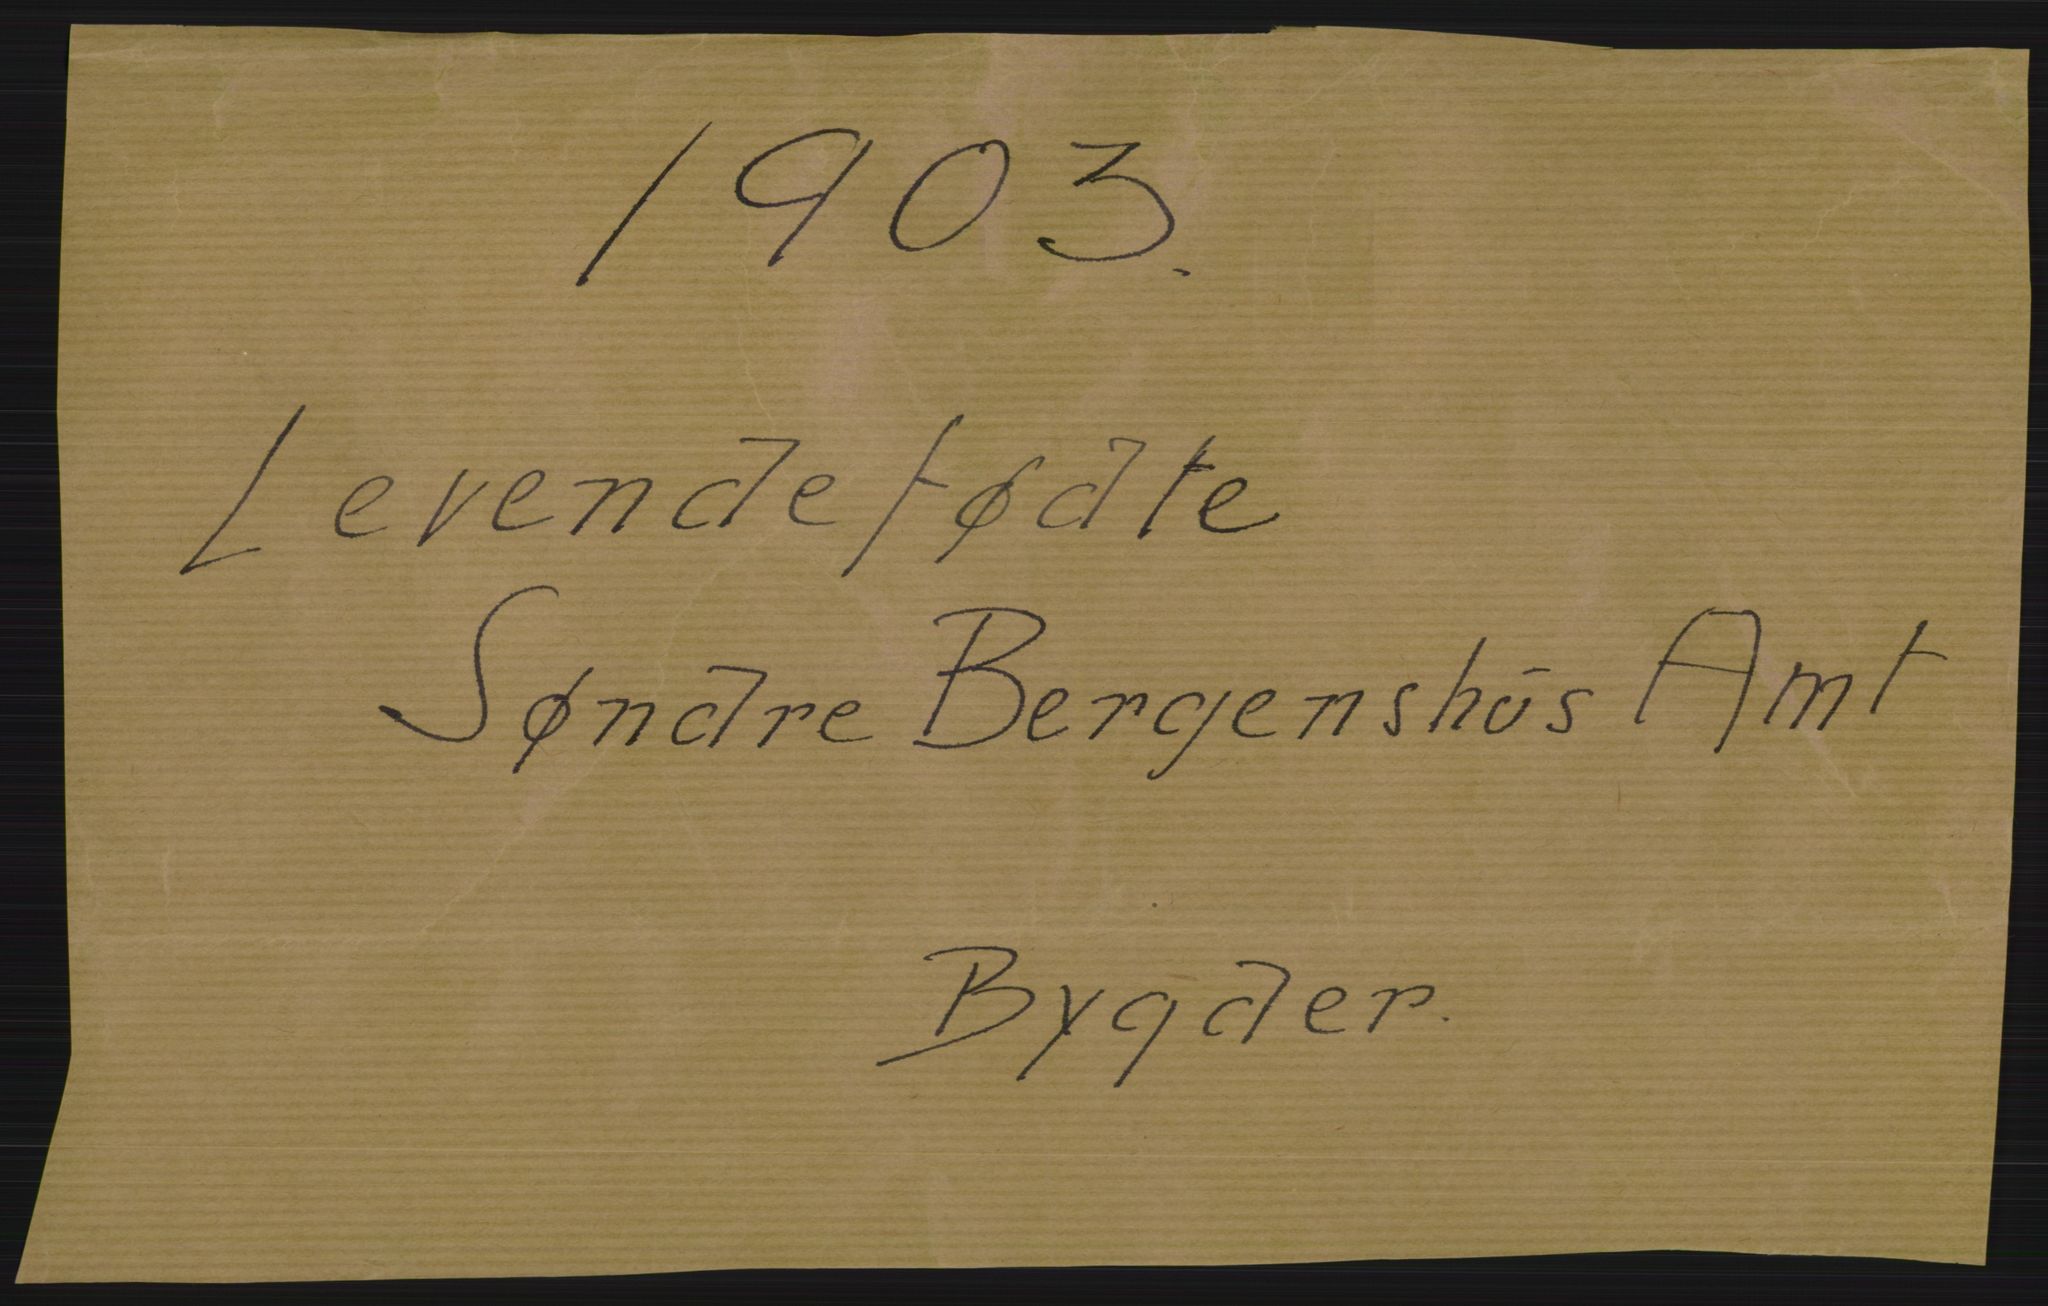 1903.
Levendefødte
Søndre Bergenshūs Amt
Bygder.